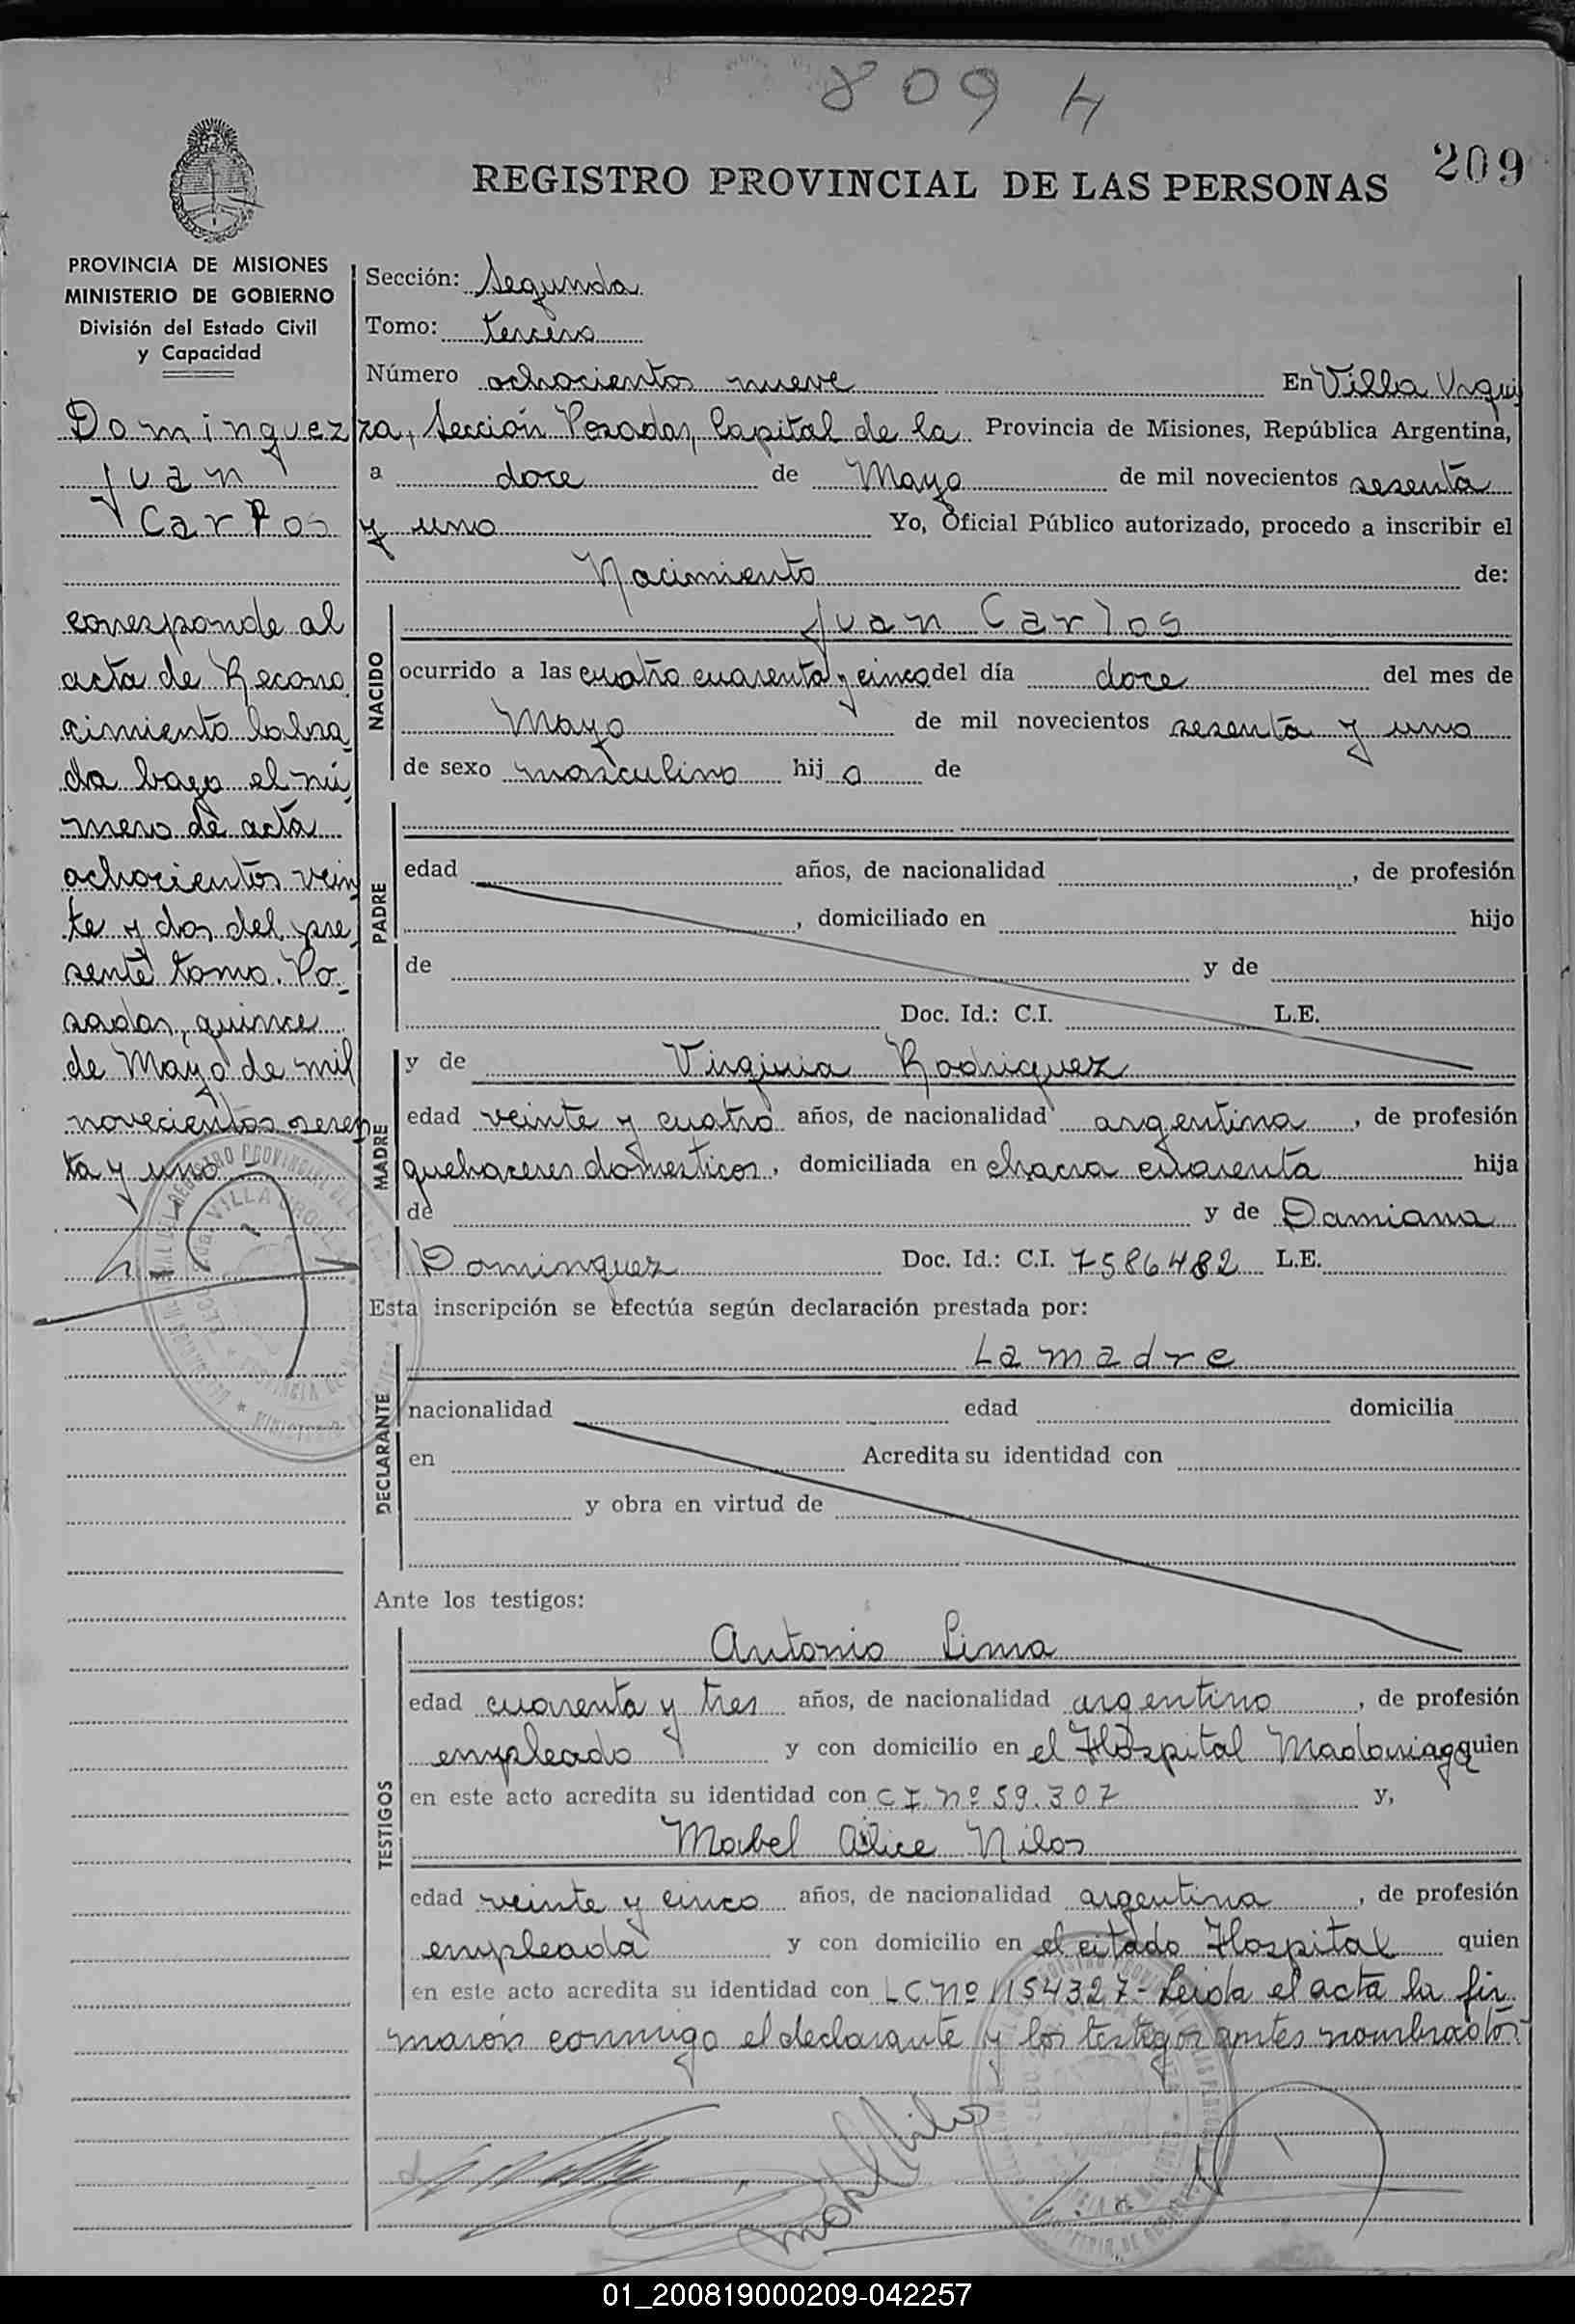 809 H
209
REGISTRO PROVINCIAL DE LAS PERSONAS
PROVINCIA DE MISIONES
MINISTERIO DE GOBIERNO
División del Estado Civil
y Capacidad
Dominguez
Juan
Carlos
corresponde al
acta de Recono
cimiento labra
da bago el nú
mero de acta
ochocientos vein
te y dos del pre
sente tomo. Po-
sadas, quince
de Mayo de mil
novecientos sesen
ta y uno
Sección: Segunda
Tomo: tercero
Número ochocientos nueve En Villa Urqui
za, Sección Posadas, Capital de la Provincia de Misiones, República Argentina,
a doce de Mayo de mil novecientos sesenta
y uno Yo, Oficial Público autorizado, procedo a inscribir el
Nacimiento de:
NACIDO
Juan Carlos
ocurrido a las cuatro cuarenta y cinco del día doce del mes de
Mayo de mil novecientos sesenta y uno
de sexo masculino hij o de
PADRE
edad años, de nacionalidad , de profesión
, domiciliado en hijo
de y de
Doc. Id.: C.I. L.E.
MADRE
y de Virginia Rodriguez
edad veinte y cuatro años, de nacionalidad argentina , de profesión
quehaceres domesticos, domiciliada en chacra cuarenta hija
de y de Damiana
Dominguez Doc. Id.: C.I. 7586482 L.E.
Esta inscripción se efectúa según declaración prestada por:
DECLARANTE
La madre
nacionalidad edad domicilia
en Acredita su identidad con
y obra en virtud de
Ante los testigos:
TESTIGOS
Antonio Lima
edad cuarenta y tres años, de nacionalidad argentino , de profesión
empleado y con domicilio en el Hospital Madariaga quien
en este acto acredita su identidad con C I. Nº 59.307 y,
Mabel Alice Nilos
edad veinte y cinco años, de nacionalidad argentina , de profesión
empleada y con domicilio en el citado Hospital quien
en este acto acredita su identidad con L C Nº 1154327- Leida el acta la fir
maron conmigo el declarante y los testigos antes nombrados-
01_200819000209-042257